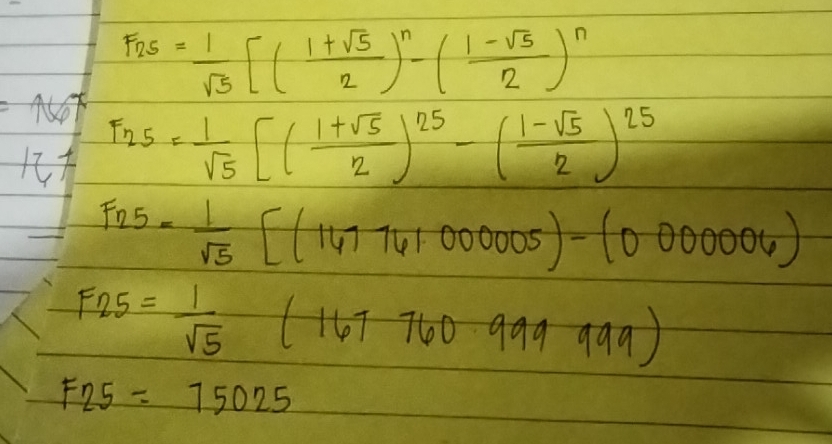 F25 = 1/√5 [ ( (1+√5)/2 )^n - ( (1-√5)/2 )^n
F25 = 1/√5 [ ( (1+√5)/2 )^25 - ( (1-√5)/2 )^25
F25 = 1/√5 [ (167 761 000005) - (0 000006)
F25 = 1/√5 (167 760 999 999)
F25 = 75025